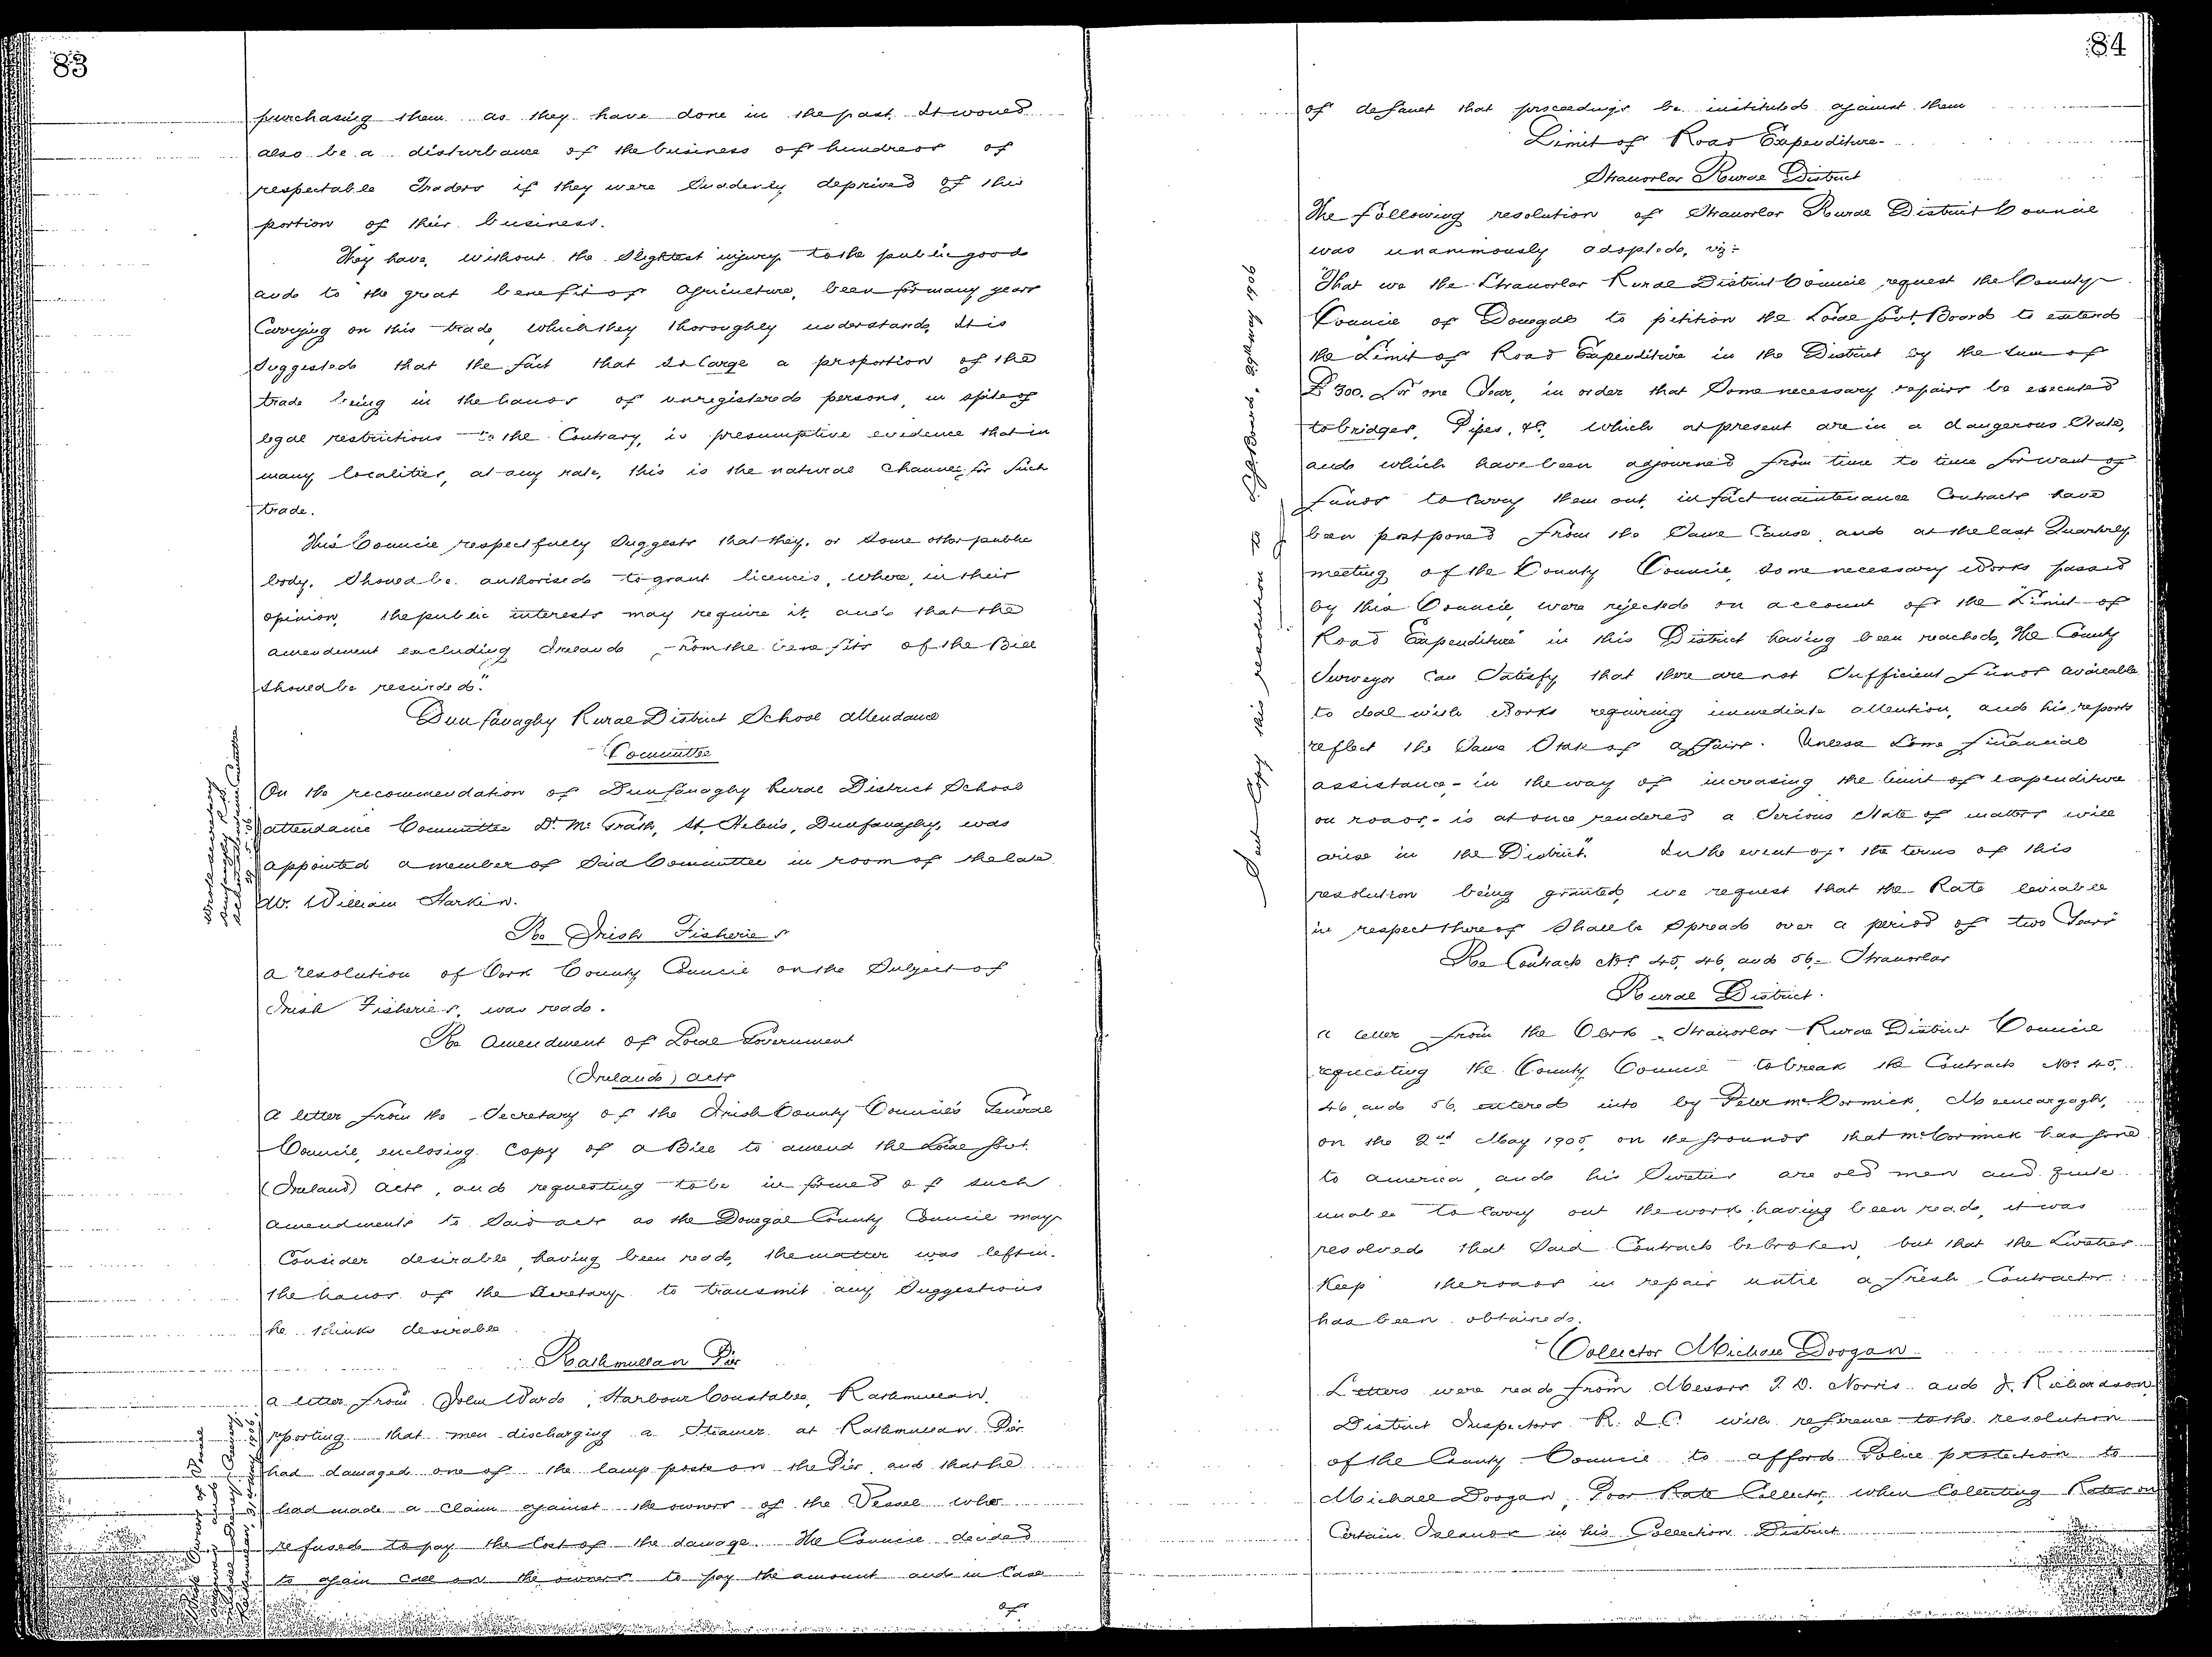 83
purchasing them as they have done in the past. It would
also be a disturbance of the business of hundreds of
respectable Traders if they were suddenly deprived of this
portion of their business.
They have, without the slightest injury to the public good
and to the great benefit of Agriculture, been for many years
Carrying on this trade, which they thoroughly understand, It is
suggested that the fact that so large a proportion of the
trade being in the hands of unregistered persons, in spite of
legal restrictions to the Contrary, is presumptive evidence that in
many localities, at any rate, this is the natural Channel for such
trade.
This Council respectfully suggests that they, or some other public
body, should be authorised to grant licences, where, in their
opinion, the public interests may require it, and that the
amendment excluding Ireland from the benefits of the Bill
should be rescinded."
Dunfanaghy Rural District School Attendance
Committee
On the recommendation of Dunfanaghy Rural District School
Attendance Committee Dr. McGrath, St. Helens, Dunfanaghy, was
appointed a member of said Committee in room of the late
Mr. William Harkin.
Wrote Secretary
Dunfanaghy R.D.
School Attendance Committee
29.5.06
Re Irish Fisheries
A resolution of Cork County Council on the Subject of
Irish Fisheries, was read.
Re Amendment of Local Government
(Ireland) Acts
A letter from the Secretary of the Irish County Councils General
Council, enclosing Copy of a Bill to amend the Local Govt.
(Ireland) Acts, and requesting to be informed of such
amendments to said acts as the Donegal County Council may
Consider desirable, having been read, the matter was left in
the hands of the Secretary to transmit any Suggestions
he thinks desirable
Rathmullan Pier
A letter from John Ward, Harbour Constable, Rathmullan,
reporting that men discharging a Steamer at Rathmullan Pier
had damaged one of the lamp posts on the Pier and that he
had made a claim against the owners of the Vessel who
refused to pay the Cost of the damage. The Council decided
to again call on the owners to pay the amount and in Case
of
Wrote Owners of Vessel
84
of default that proceedings be instituted against them
Limit of Road Expenditure
Stranorlar Rural District
The following resolution of Stranorlar Rural District Council
was unanimously adopted, viz:-
"That we the Stranorlar Rural District Council request the County
Council of Donegal to petition the Local Govt. Board to extend
the Limit of Road Expenditure in the District by the sum of
£300. for one Year, in order that some necessary repairs be executed
to bridges, Pipes, &c, which at present are in a dangerous State,
and which have been adjourned from time to time for want of
funds to Carry them out, in fact maintenance Contracts have
been postponed from the Same Cause, and at the last Quarterly
meeting of the County Council, some necessary Works passed
by this Council, were rejected on account of the Limit of
Road Expenditure in this District having been reached, The County
Surveyor Can Satisfy that there are not Sufficient funds available
to deal with Works requiring immediate attention, and his reports
reflect the Same State of affairs. Unless some financial
assistance - in the way of increasing the limit of expenditure
on roads, - is at once rendered a Serious State of matters will
arise in the District." In the event of the terms of this
resolution being granted, we request that the Rate leviable
in respect thereof Shall be Spread over a period of two Years
Sent Copy this resolution to L. G. Board, 29th May 1906
Re Contracts Nos 45, 46, and 56,- Stranorlar
Rural District.
A letter from the Clerk, Stranorlar Rural District Council
requesting the County Council to break the Contracts Nos 45,
46, and 56, entered into by Peter McCormick,
on the 2nd May 1905, on the grounds that McCormick has gone
to America, and his Sureties are old men and quite
unable to Carry out the work, having been read, it was
resolved that Said Contracts be broken, but that the Sureties
Keep the roads in repair until a fresh Contractor
has been obtained.
Collector Michael Doogan
Letters were read from Messrs T. D. Norris and J. Richardson,
District Inspectors R.I.C. with reference to the resolution
of the County Council to afford Police protection to
Michael Doogan, Poor Rate Collector, when Collecting Rates on
Certain Islands in his Collection District